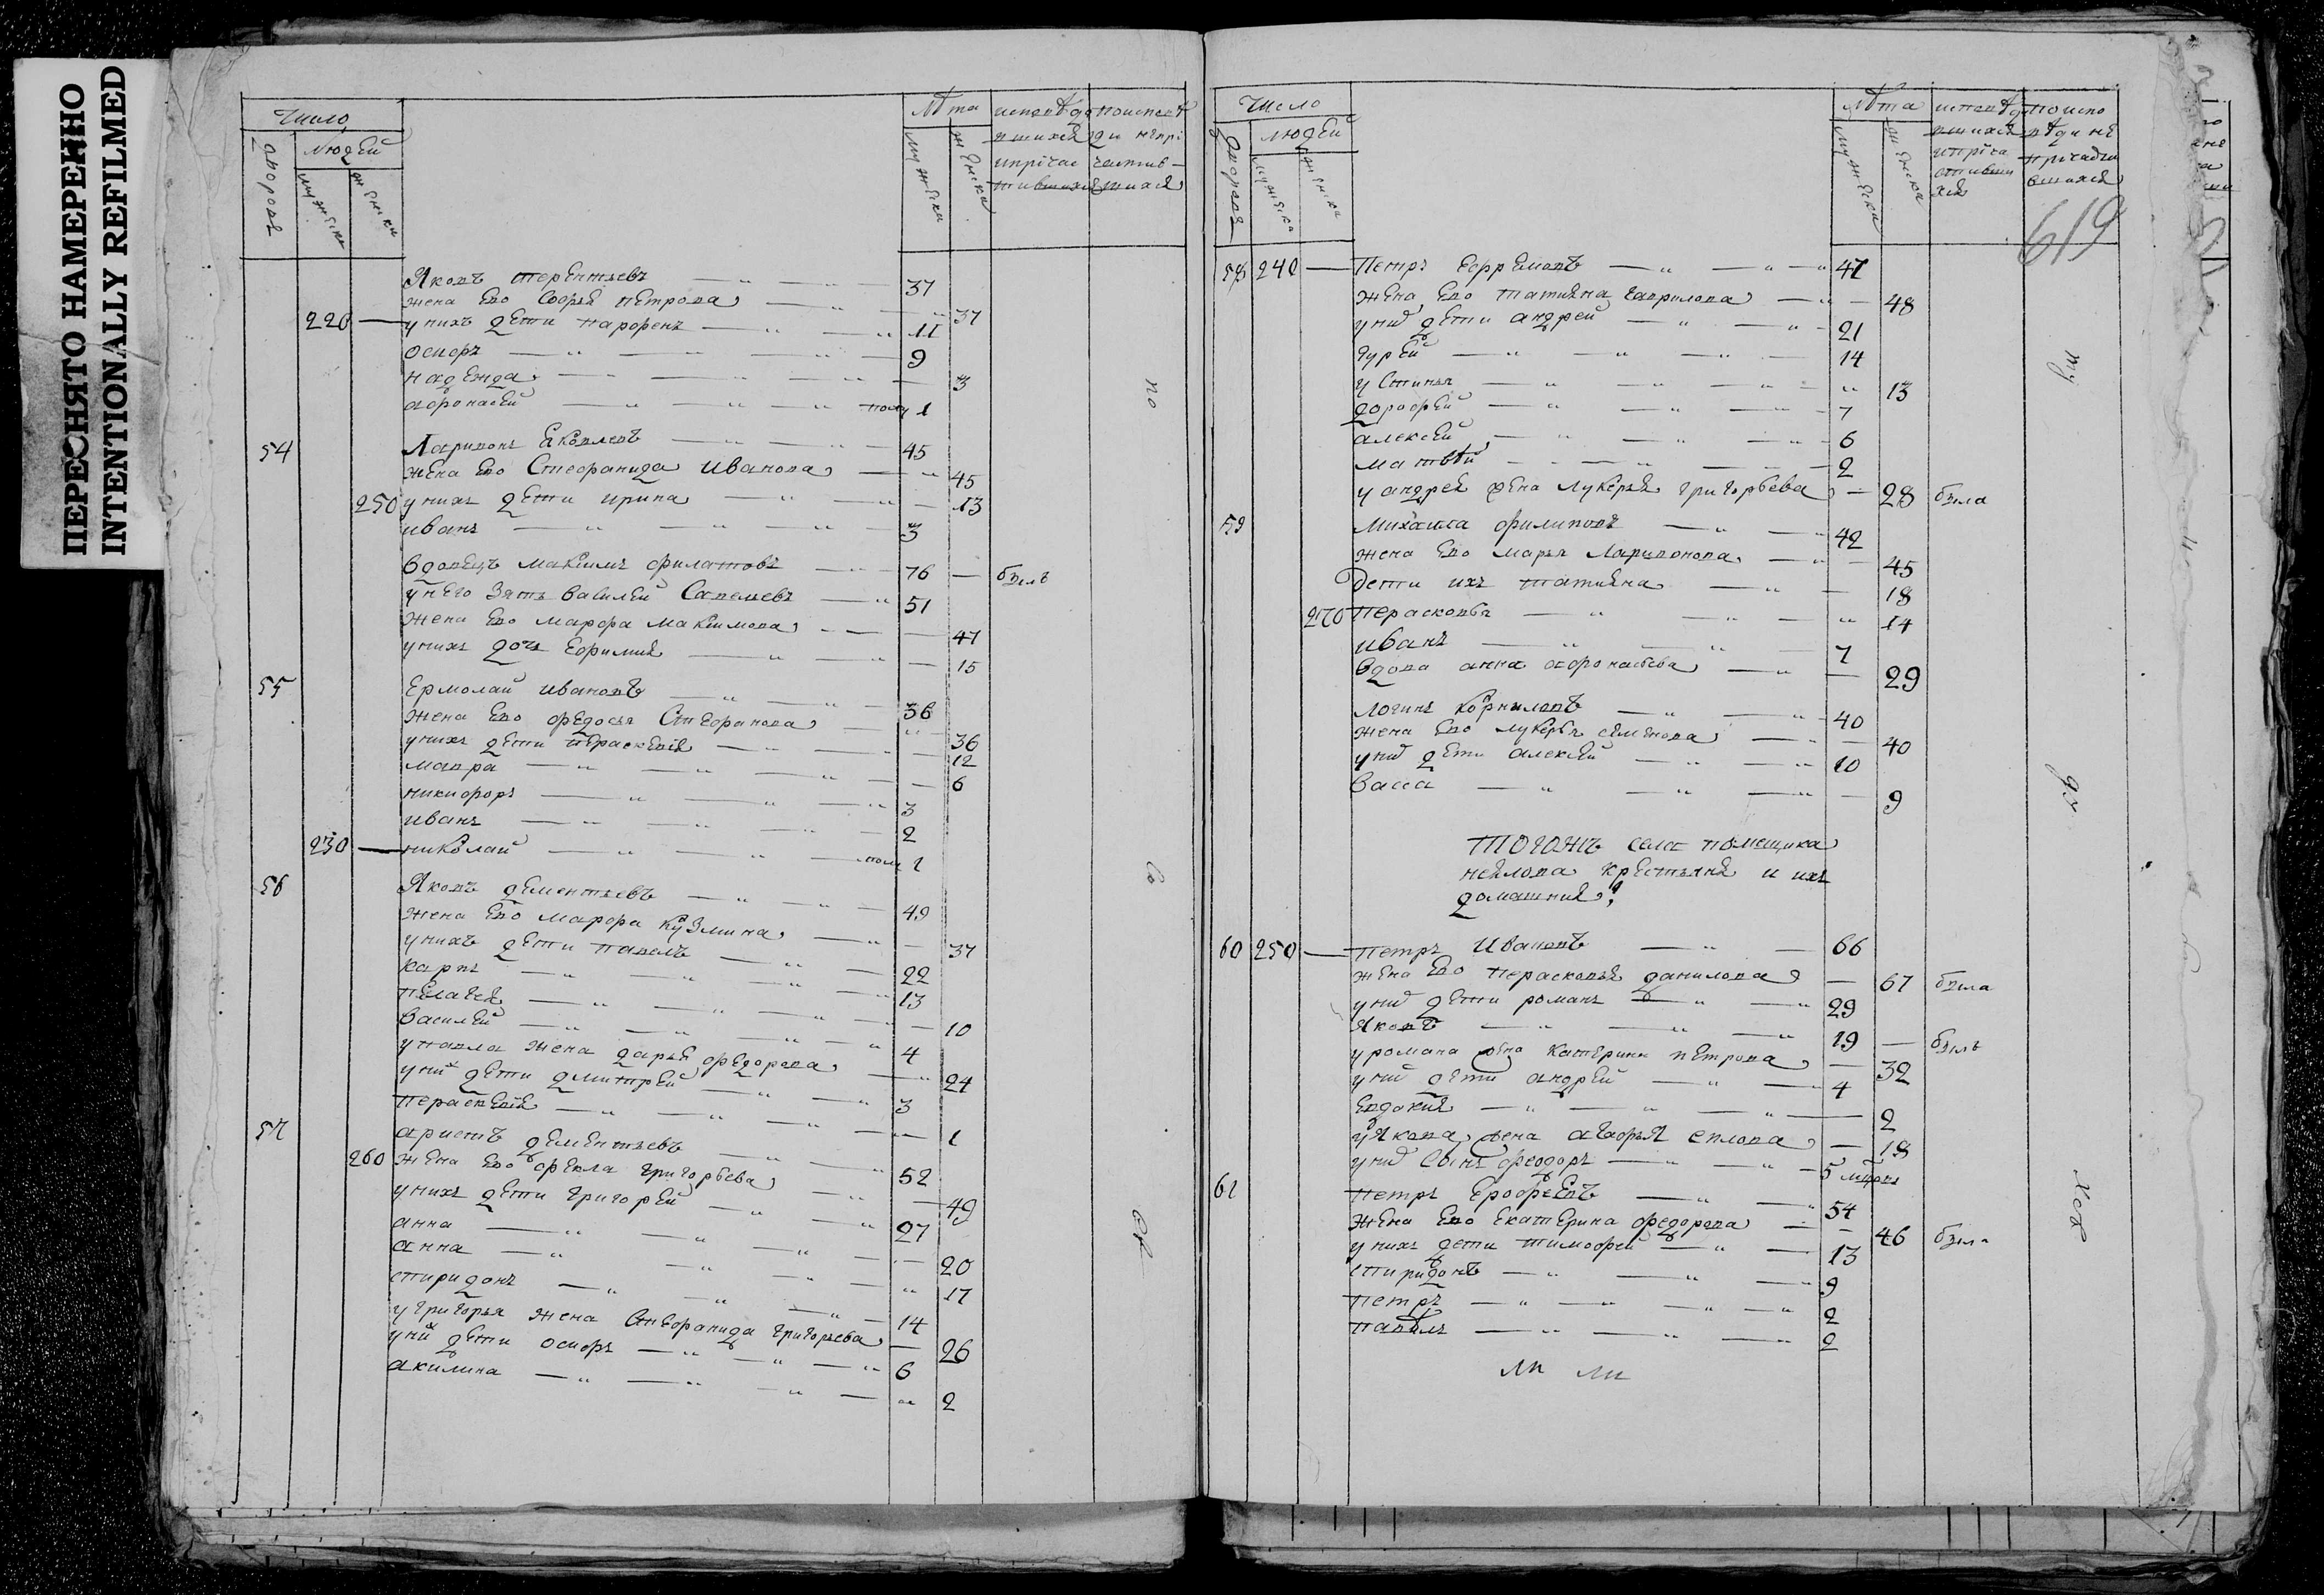 ПЕРЕСНЯТО НАМЕРЕННО
INTENTIONALLY REFILMED
Число
людей
дворовъ
мужеска
женска
Лѣта
мужеска
женска
исповѣда
вшихся
ипрічас
тившихся
поисповѣ
ди непрі
частив
шихся
Яковъ терентьевъ 37
жена Ево Софья петрова 37
220 унихъ дети парфенъ 11
осипъ 9
надежда 3
афонасей полу 1
54 Ларивонъ Яковлевъ 45
жена Ево Стефанида Иванова 45
250 унихъ дети ирина 13
иванъ 3
вдовецъ максимъ филатовъ 76 былъ
унего зять василей Савельевъ 51
жена Ево марфа максимова 47
унихъ дочь Ефимия 15
55 Ермолай ивановъ 36
жена Ево федосья Стефанова 36
унихъ дети парасковія 12
мавра 6
никифоръ 3
иванъ 2
230 николай полу 1
56 Яковъ дементьевъ 49
жена Ево марфа кузмина 37
унихъ дети павелъ 22
карпъ 13
пелагея 10
василей 4
упавла жена дарья федорова 24
уних дети дмитрей 3
парасковія 1
57 аристъ дементьевъ 52
260 жена Ево фекла григорьева 49
унихъ дети григорей 27
анна 20
анна 17
спиридонъ 14
угригорья жена Стефанида григорьева 26
уних дети осипъ 6
акилина 2
по
Число
людей
дворовъ
мужеска
женска
Лѣта
мужеска
женска
исповѣда
вшихся
ипріча
стивши
хся
поиспо
вѣди не
причасти
вшихся
619
58 240 Петръ Ефремовъ 47
жена Ево татияна гаврилова 48
уних дети андрей 21
гурей 14
устинья 13
дорофей 7
алексей 6
матвѣй 2
уандрея жена лукерья григорьева 28 была
59 Михаила филиповъ 42
жена Ево марья Ларивонова 45
Дети ихъ татияна 18
270 перасковья 14
иванъ 7
вдова анна афонасьева 29
логинъ корниловъ 40
жена Ево лукерья семенова 40
уних дети алексей 10
васса 9
тогожъ села помещика
неелова крестьяня и ихъ
домашния
60 250 петръ Ивановъ 66
жена Ево перасковья данилова 67 была
уних дети романъ 29
Яковъ 19 былъ
уромана жена катерина петрова 32
уних дети андрей 4
Евдокия 2
уЯкова жена агафья 18
уних сынъ феодоръ 5
61 петръ Ерофеевъ 54
жена Ево Екатерина федорова 46 была
унихъ дети тимофей 13
спиридонъ 9
петръ 2
павелъ 2